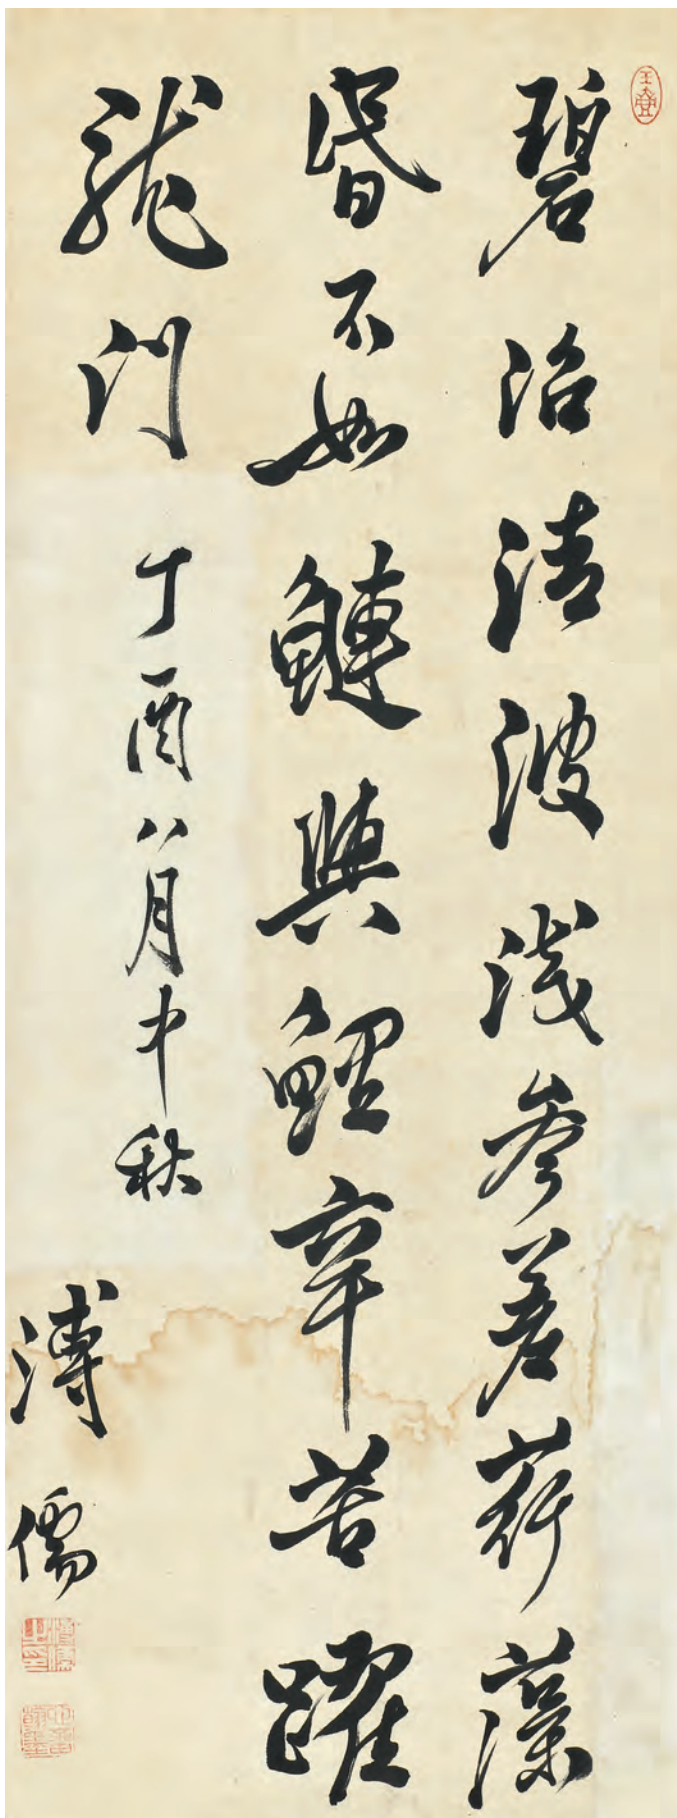 碧沼清波淺參差荇藻
昏不如鰱與鯉辛苦躍
龍門
丁酉八月中秋
溥儒
溥儒之印